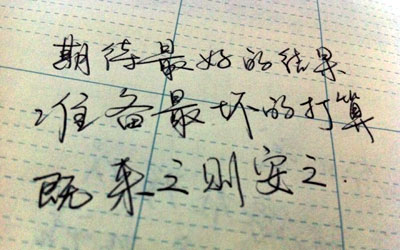 期待最好的结果
准备最坏的打算
既来之则安之.